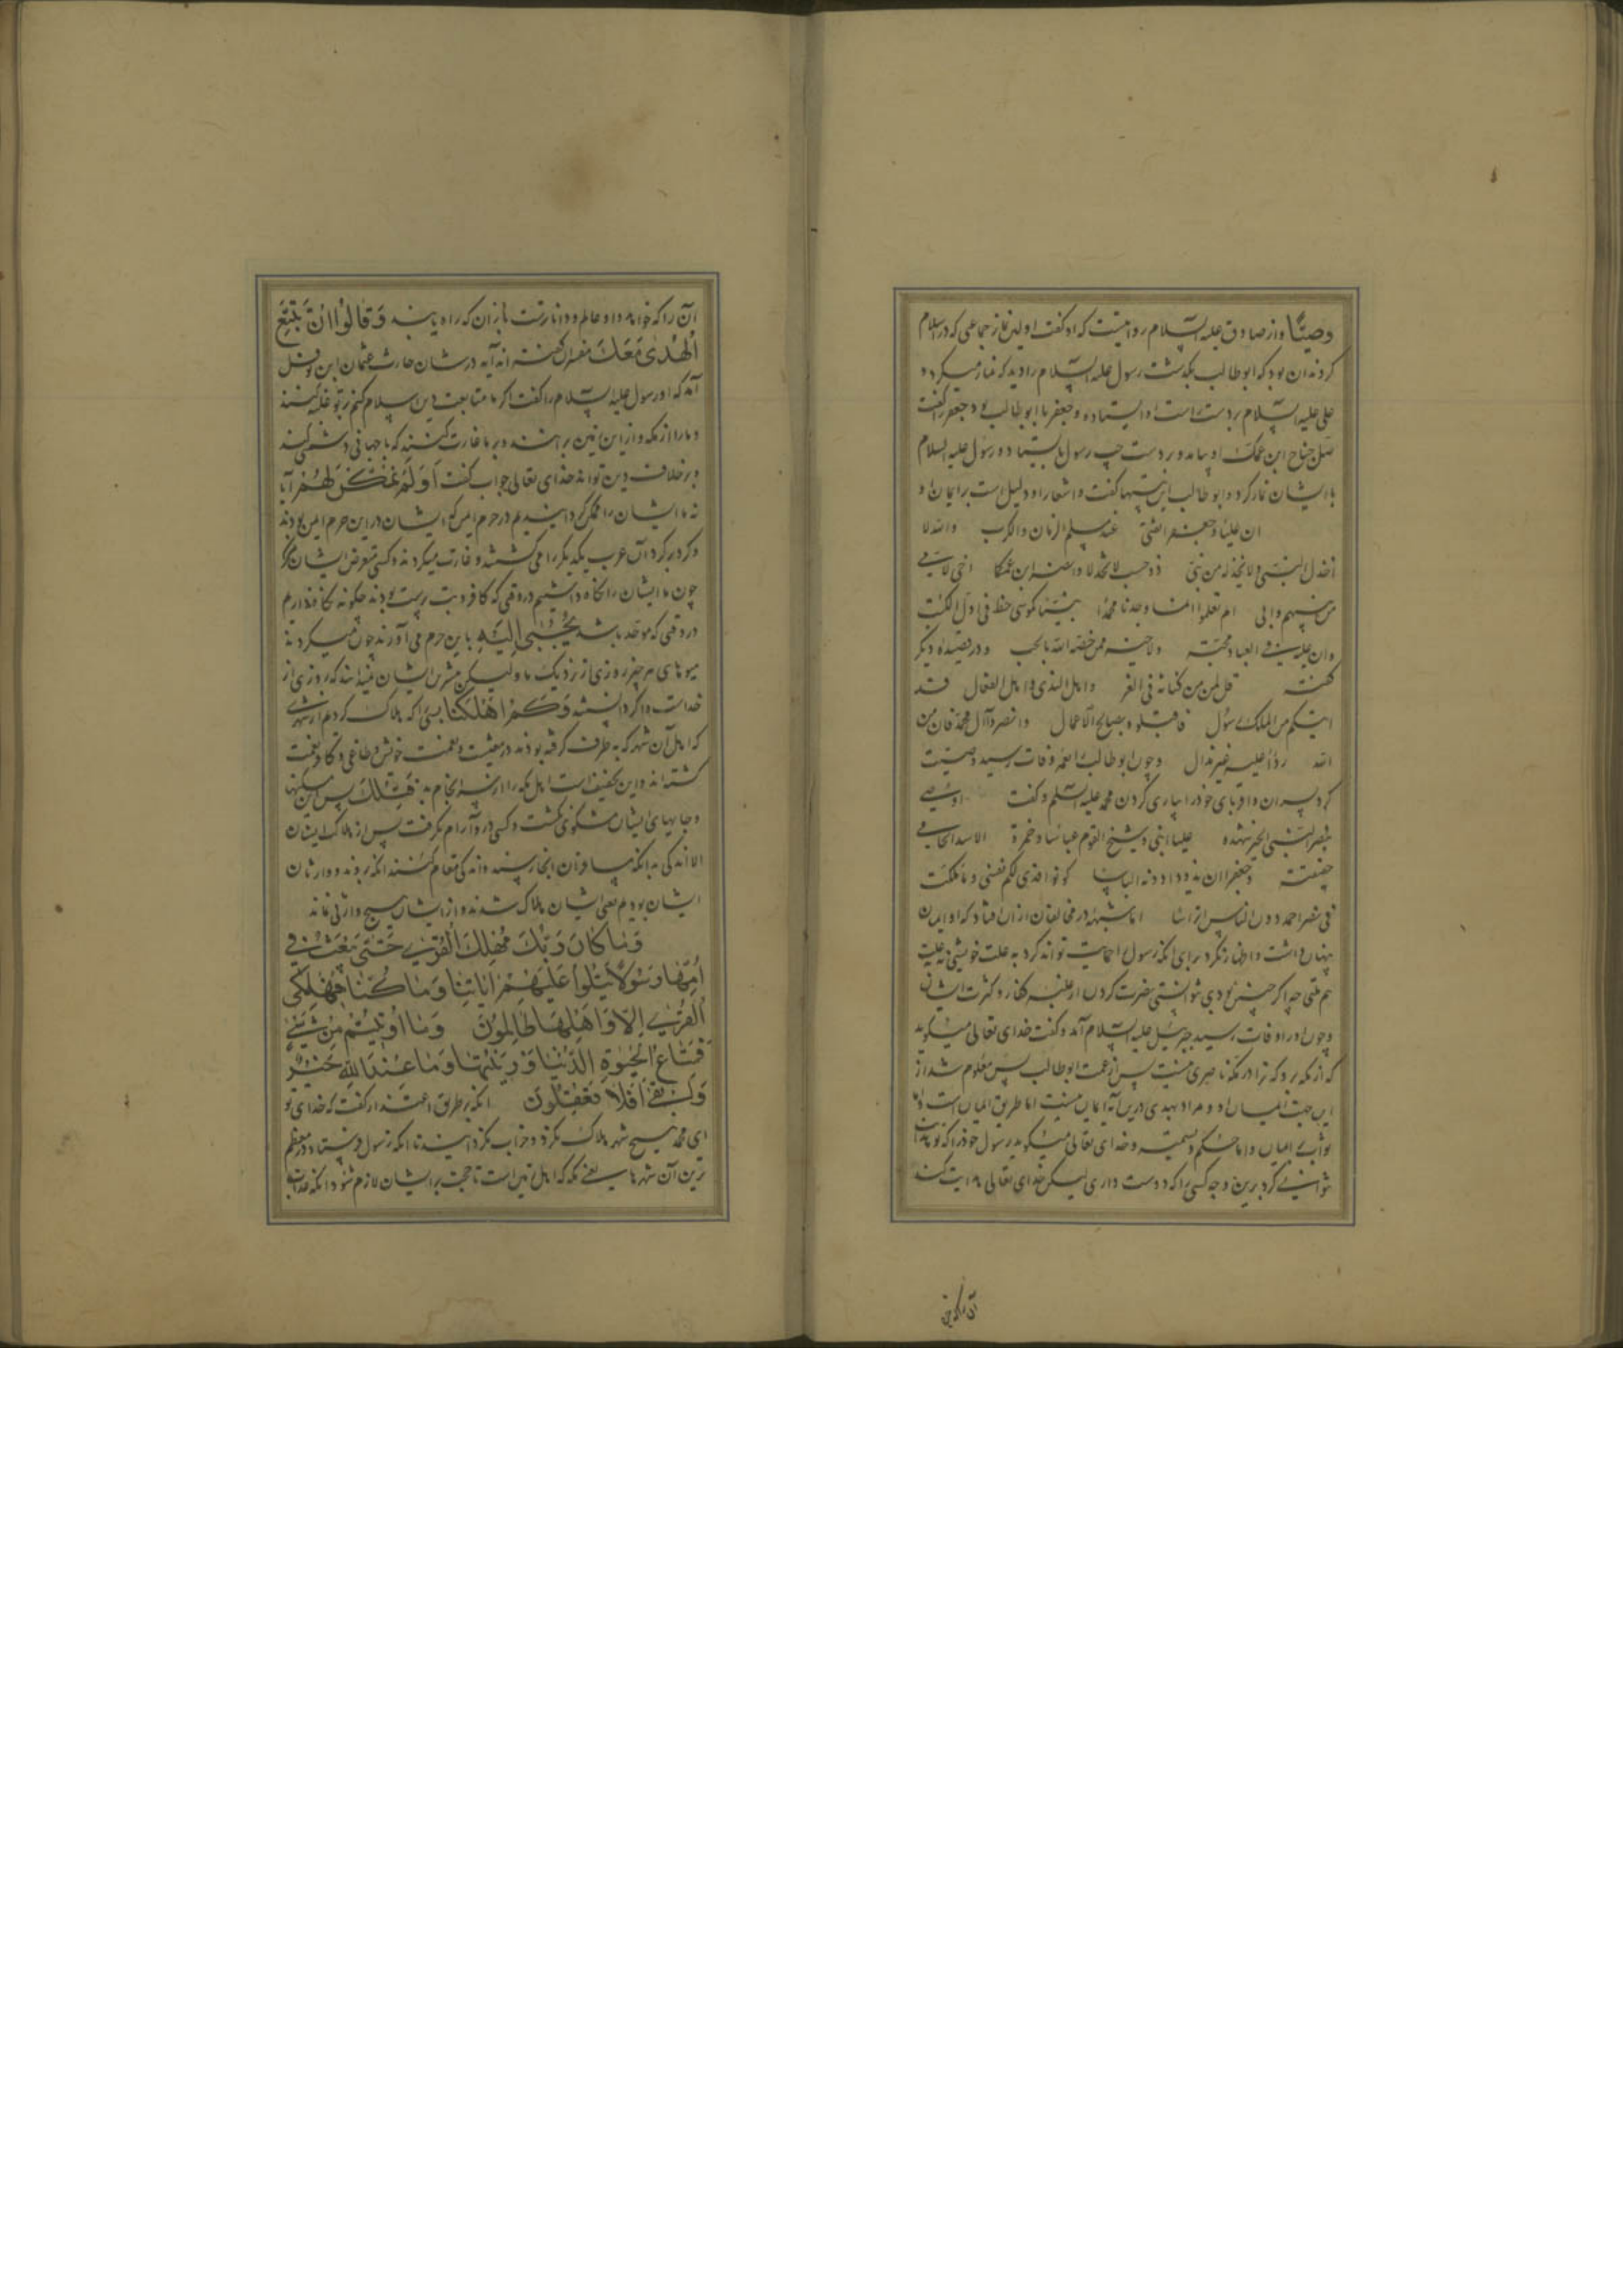 وصیّا واز صادق علیه السلام روایتست که او گفت اولین نماز جماعتی که در اسلام
کردند آن بود که ابو طالب بگذشت رسول علیه السلام را دید که نماز میکرد و
علی علیه السلام بر دست راست او ایستاده و جعفر با ابو طالب بود جعفر را گفت
صل جناح ابن عمک او بیامد و بر دست چپ رسول بایستاد و رسول علیه السلام
با ایشان نماز کرد و ابو طالب این بیتها گفت و اشعار او دلیل است بر ایمان او
ان علیا و جعفرا ثقتی عند ملم الزمان والکرب والله لا
اخذل النبی ولا یخذله من بنی ذو حسب لا تخذلا وانصرا ابن عمکا اخی لامی
من بینهم وابی الم تعلموا انا وجدنا محمدا نبیا کموسی خط فی اول الکتب
وان علیه فی العباد محبة ولا خیر ممن خصه الله بالحب و در قصیده دیگر
گفته قل لمن من کنانة فی العز واهل الندی واهل الفعال قد
اتیکم من الملیک رسول فاقبلوه بصالح الاعمال وانصروا آل محمد فان من
الله ردا علیه غیر مذال و چون ابو طالب را عمر وفات رسید وصیت
کرد پسران و اقربای خود را بیاری کردن محمد علیه السلم و گفت اوصی
بنصر النبی الخیر مشهده علیا ابنی وشیخ القوم عباسا وحمزة الاسد الحامی
حقیقته وجعفرا ان یذودا دونه الباسا کونوا فدی لکم نفسی وما ملکت
فی نصر احمد دون الناس اتراسا اما شبهه در مخالفان ازان افتاد که او ایمان
پنهان داشت و اظهار نکرد برای آنکه رسول را حمایت تواند کرد به علت خویشی نه علت
هم ملتی چه اگر چنین نبودی نتوانستی نصرت کردن از غلبه کفار و کثرت ایشان
و چون او را وفات رسید جبرئیل علیه السلام آمد و گفت خدای تعالی میگوید
که از مکه برو که ترا در مکه ناصری نیست پس از عمت ابو طالب پس معلوم شد از
این جهت ایمان او و مراد بهدی درین آیه ایمان نیست اما طریق ایمان است
ثواب ایمان واما حکم و تسمیت و خدای تعالی میگوید رسول خود را که تو هدایت
نتوانی کرد برین وجه کسی را که دوست داری لیکن خدای تعالی هدایت کند
آن را که خواهد
آن را که خواهد و او عالم و داناترست بازان که راه یابند وَقَالُوا اِنْ نَتَّبِعِ
الْهُدٰی مَعَكَ مفسران گفته اند آیه در شان حارث عثمان ابن نوفل
آمد که او رسول علیه السلام را گفت اگر ما متابعت دین اسلام کنیم بر تو غلبه کنند
و ما را از مکه و از این زمین برانند و بر ما غارت کنند که با جهانی دشمنی کند
و بر خلاف دین تو اند خدای تعالی جواب گفت اَوَلَمْ نُمَكِّنْ لَهُمْ آیا
نه ما ایشان را ممکن گردانیدیم در حرم ایمن که ایشان در این حرم ایمن بودند
و گرد بر گرد آن عرب یکدیگر را می کشتند و غارت میکردند و کسی تعرض ایشان نکرد
چون ما ایشان را نگاه داشتیم در وقتی که کافر و بت پرست بودند چگونه نگاه نداریم
در وقتی که موحد باشند یُجْبٰی اِلَیْهِ باین حرم می آورند چون میکردند
میوهای هر چیز روزی از نزدیک ما و لیکن بیشترین ایشان نمیدانند که روزی از
خداست و اگر دانستند وَكَمْ اَهْلَكْنَا بسی را که هلاک کردیم از شهری
که اهل آن شهر که بطرف گرفته بودند در معیشت و نعمت خوش و طاغی و کافر نعمت
گشته اند و این تخفیف است اهل مکه را از سرانجام بد فَتِلْكَ پس این مسکنها
و جایهای ایشان مسکون نگشت و کسی در و آرام نگرفت پس از هلاک ایشان
الا اندکی بدانکه مسافران آنجا رسند و اندکی مقام کنند آنکه بروند و وارثان
ایشان بودیم یعنی ایشان هلاک شدند و از ایشان هیچ وارثی نماند
وَمَا كَانَ رَبُّكَ مُهْلِكَ الْقُرٰی حَتّٰی یَبْعَثَ فِی
اُمِّهَا رَسُولًا یَتْلُوا عَلَیْهِمْ اٰیَاتِنَا وَمَا كُنَّا مُهْلِكِی
الْقُرٰی اِلَّا وَاَهْلُهَا ظَالِمُونَ وَمَا اُوتِیتُمْ مِنْ شَیْءٍ
فَمَتَاعُ الْحَیٰوةِ الدُّنْیَا وَزِینَتُهَا وَمَا عِنْدَ اللّٰهِ خَیْرٌ
وَاَبْقٰی اَفَلَا تَعْقِلُونَ آنکه بر طریق اعتذار گفت که خدای تو
ای محمد هیچ شهر هلاک نکرد و خراب نگردانید تا آنکه رسول فرستاد در معظم
ترین آن شهرها یعنی مکه که اهل تراست تا حجت بر ایشان لازم شود آنکه عذاب